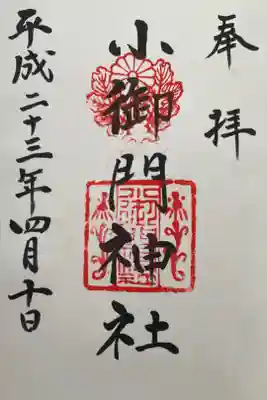 奉拝
小御門神社
平成二十三年四月十日